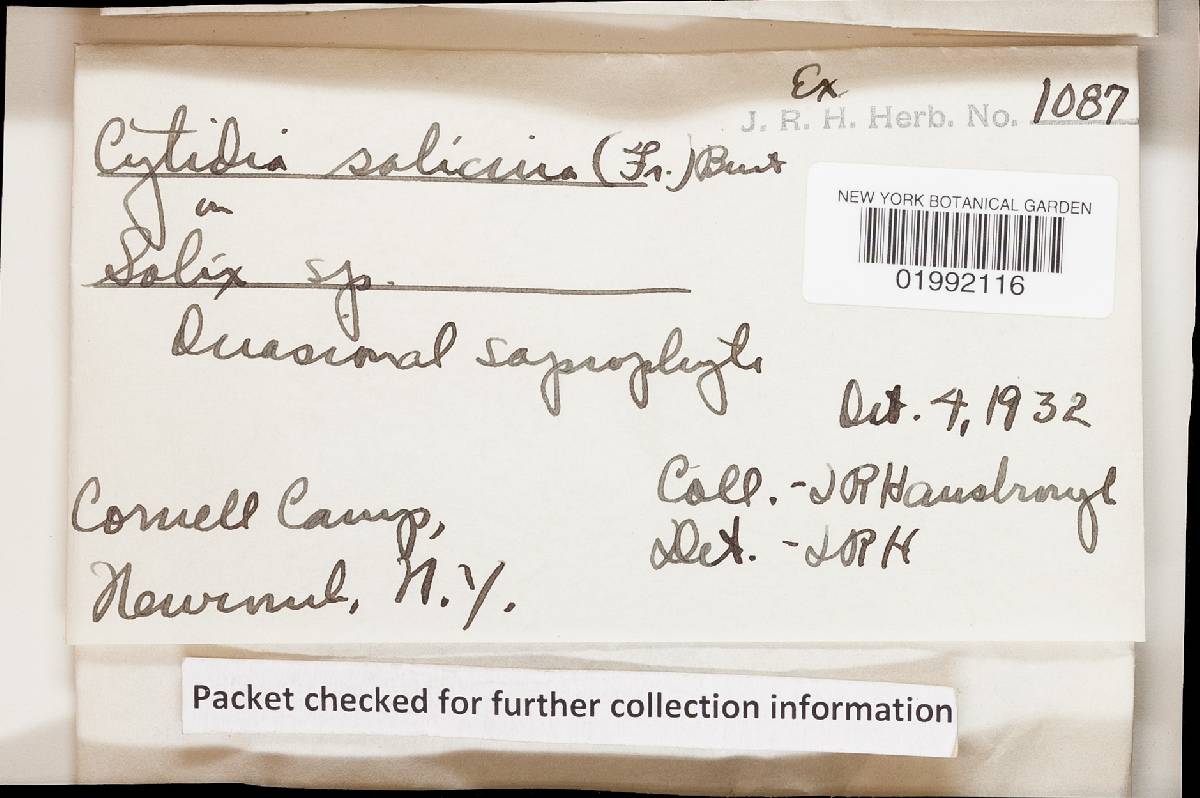 Ex
J. R. H. Herb. No. 1087
Cytidia salicina (Fr.) Burt
on
Salix sp.
Occasional saprophyte
Oct. 4, 1932
Coll. - JRHansbrough
Det. - JRH
Cornell Camp,
Newcomb, N.Y.
NEW YORK BOTANICAL GARDEN
01992116
Packet checked for further collection information